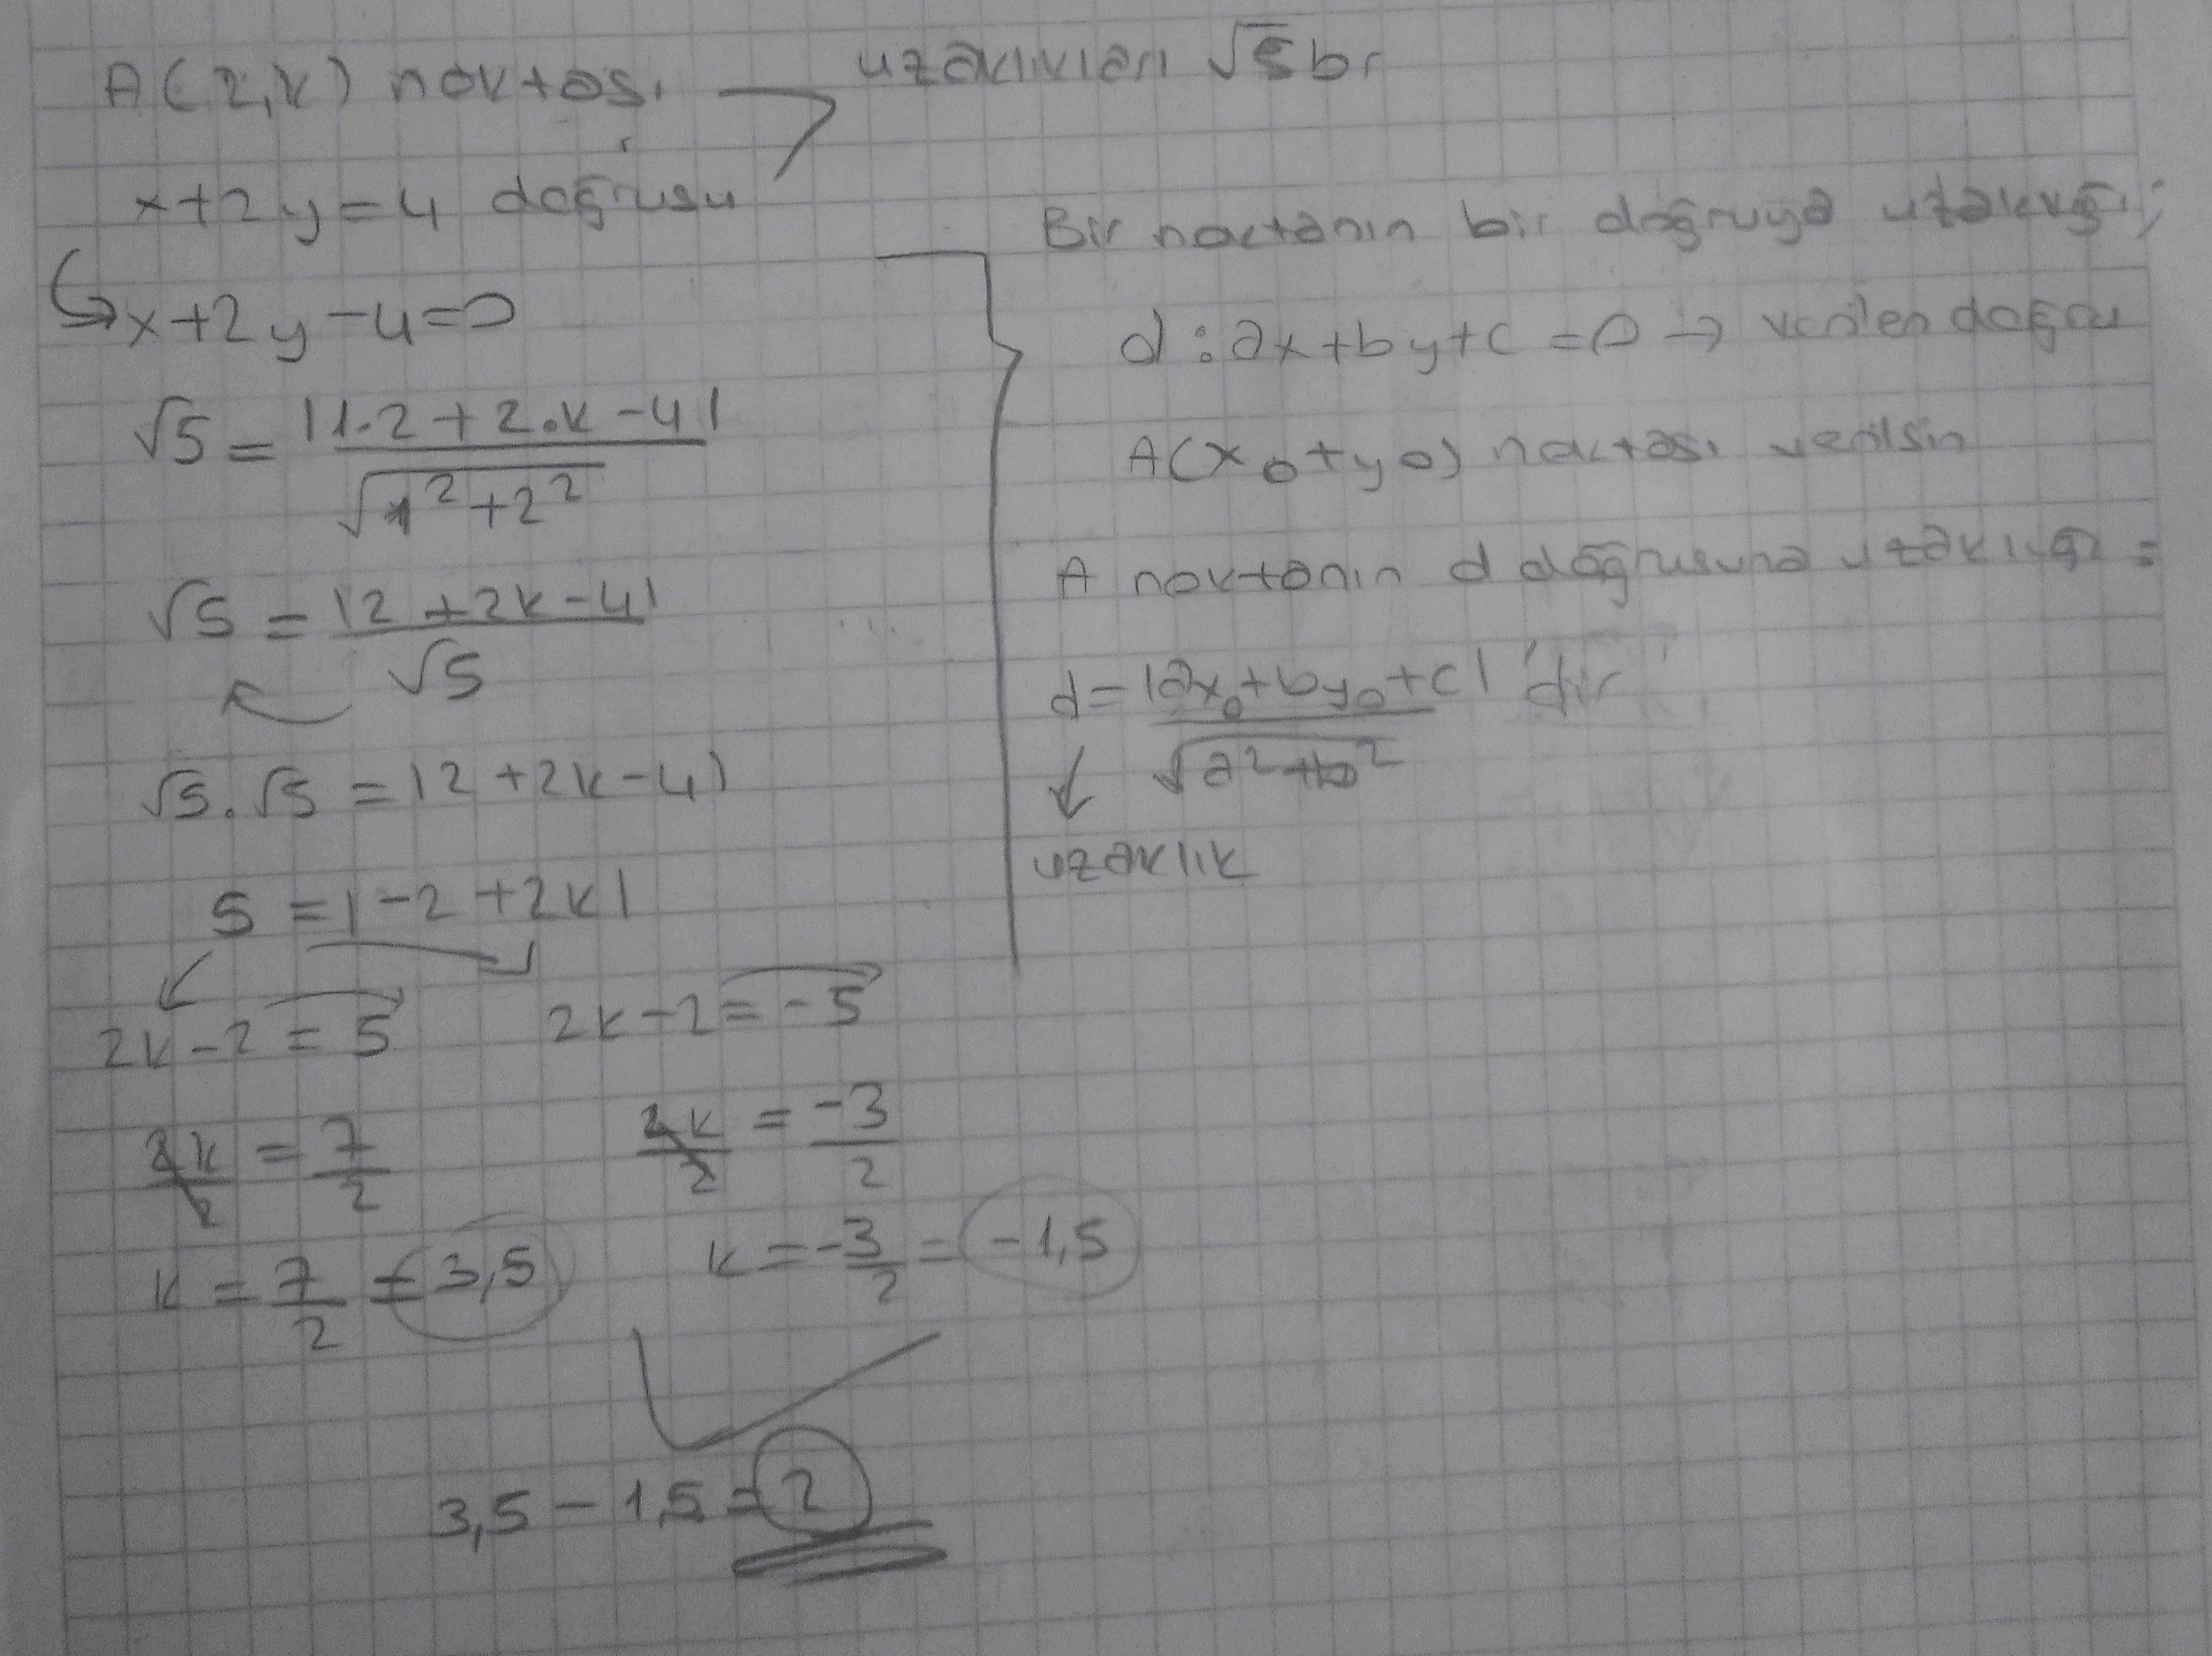 A(2,k) noktası
uzaklıkları √5 br
x+2y=4 doğrusu
x+2y-4=0
√5 = |1.2+2.k-4|
√1²+2²
√5 = |2+2k-4|
√5
√5.√5 = |2+2k-4|
5 = |-2+2k|
2k-2=5 2k-2=-5
2k/2 = 7/2 2k/2 = -3/2
k = 7/2 = 3,5 k = -3/2 = -1,5
3,5-1,5=2
Bir noktanın bir doğruya uzaklığı;
d: ax+by+c=0 → verilen doğru
A(x₀+y₀) noktası verilsin
A noktanın d doğrusuna uzaklığı =
d = |ax₀+by₀+c| 'dir
√a²+b²
uzaklık